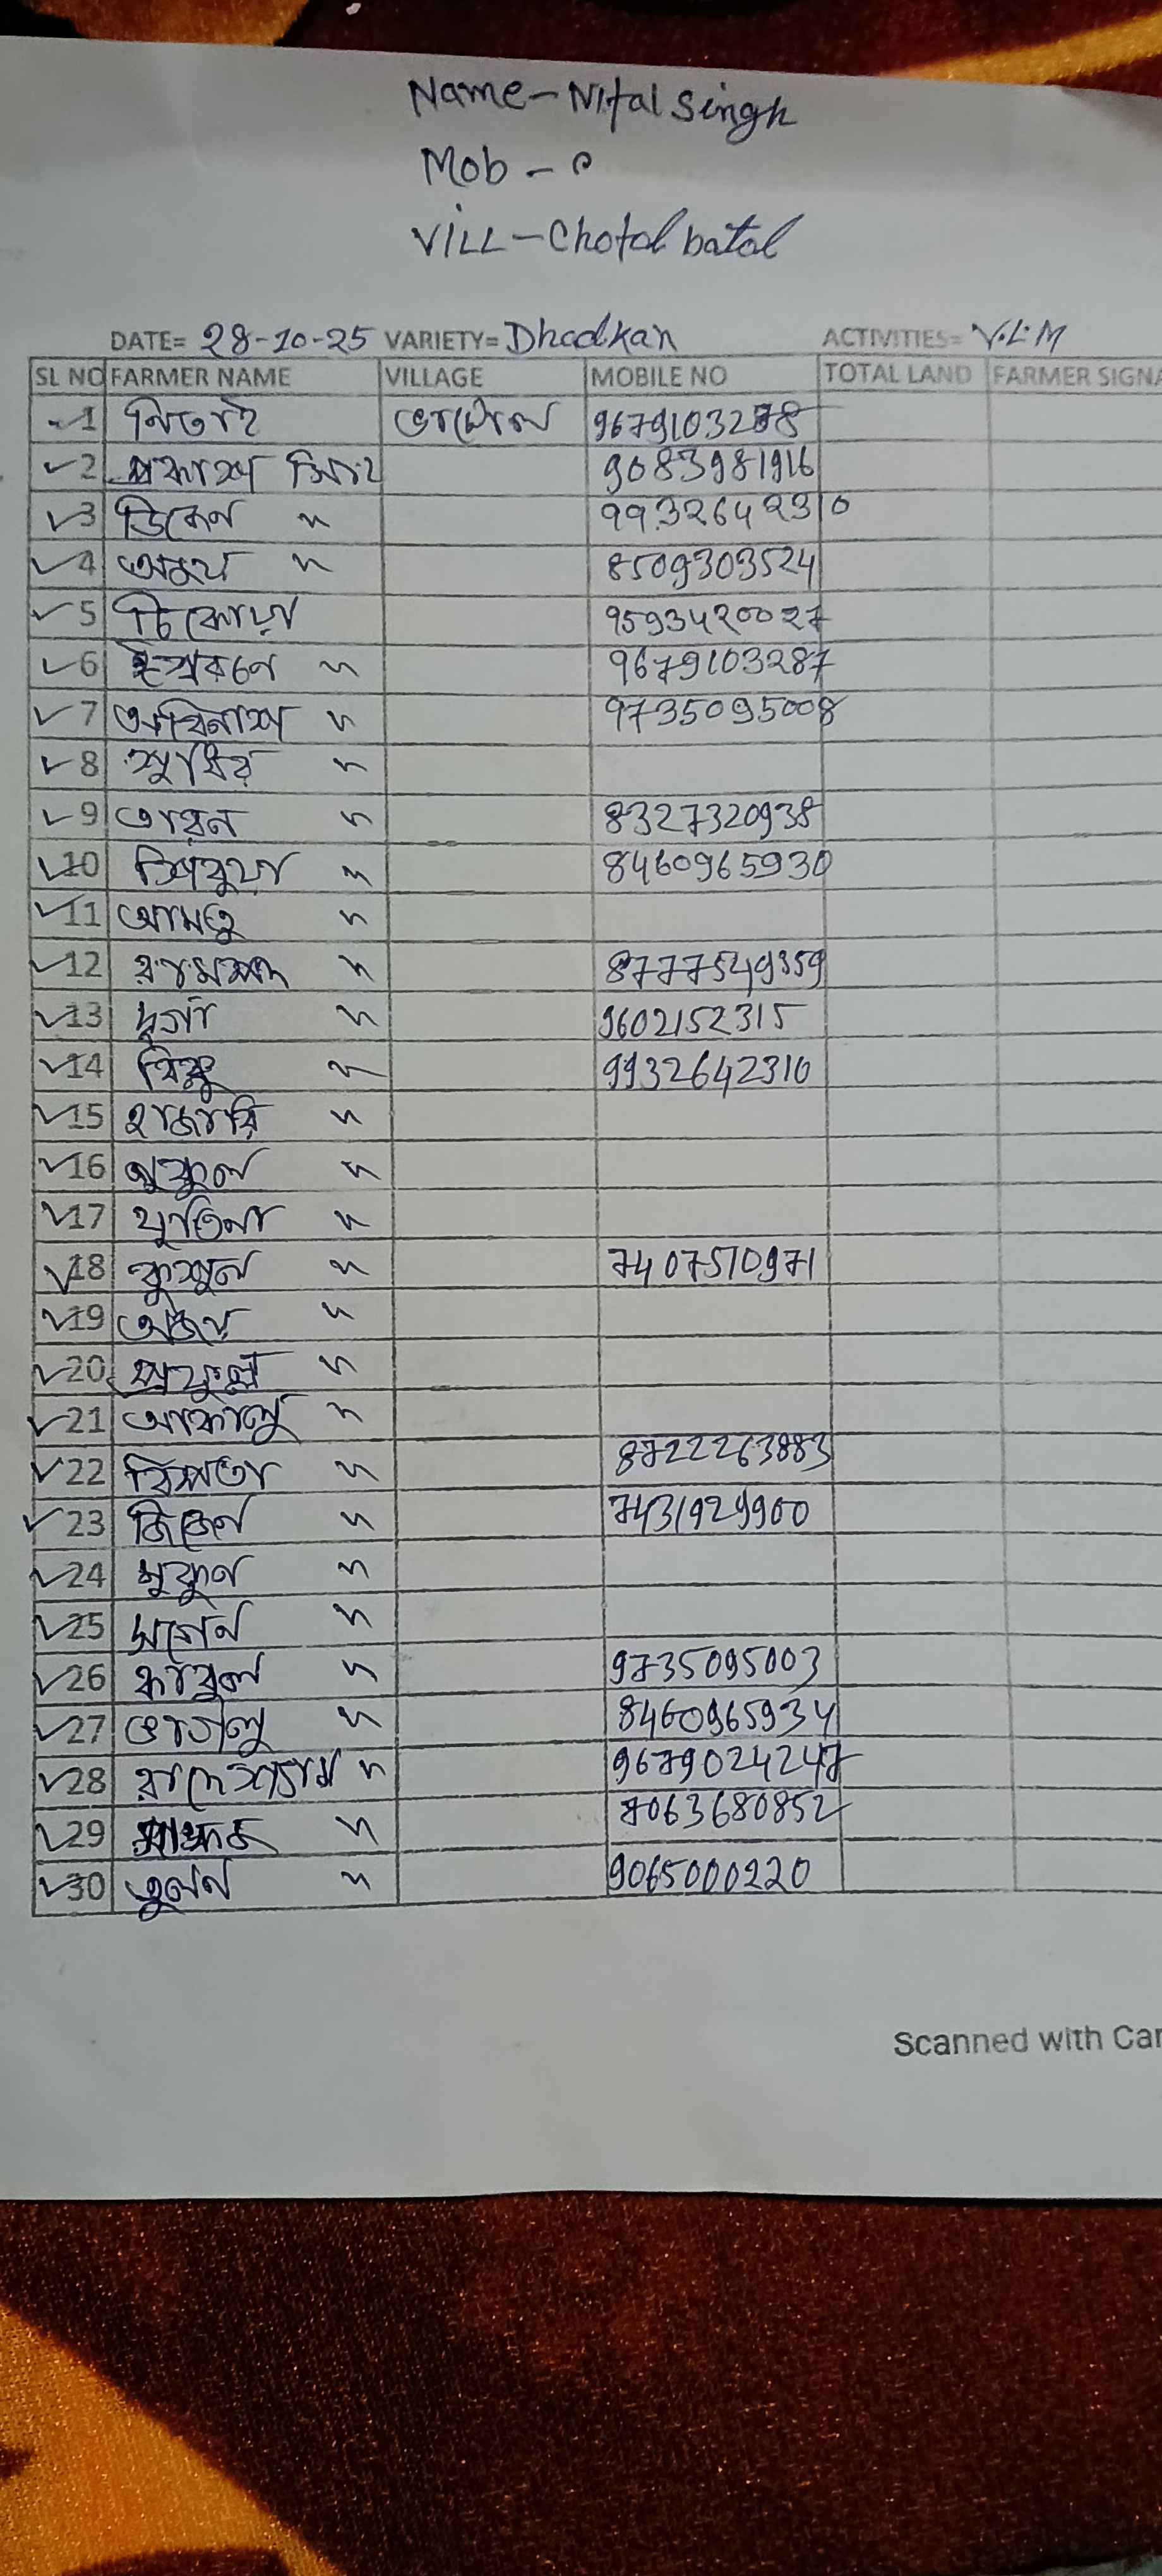 Name - Nital Singh
Mob -
VILL - Chotal batal
DATE= 28-10-25 VARIETY= Dhadkan ACTIVITIES= V.L.M
SL NO FARMER NAME VILLAGE MOBILE NO TOTAL LAND FARMER SIGNA
1 নিতাই 9679103278
2 প্রকাশ সিংহ 9083981916
3 ডিকেন " 9932642310
4 অভয় " 8509303524
5 টিকোয়া 9593420027
6 " 9679103287
7 অবিনাশ " 9735095008
8 সুধির "
9 তারন " 8327320938
10 শিবুয়া " 8460965930
11 আমতু "
12 রামপদ " 8777549359
13 দূর্গা " 9602152315
14 বিষ্ণু " 9932642310
15 হাজারি "
16 "
17 "
18 " 7407510971
19 অজয় "
20 প্রফুল্ল "
21 আকালু "
22 " 8722263883
23 জিতেন " 7431929900
24 মুকুল "
25 "
26 কাবুল " 9735095003
27 ভাগলু " 8460965934
28 রাদেশ্যাম " 9679024247
29 " 7063680852
30 তুলন " 9065000220
Scanned with Car